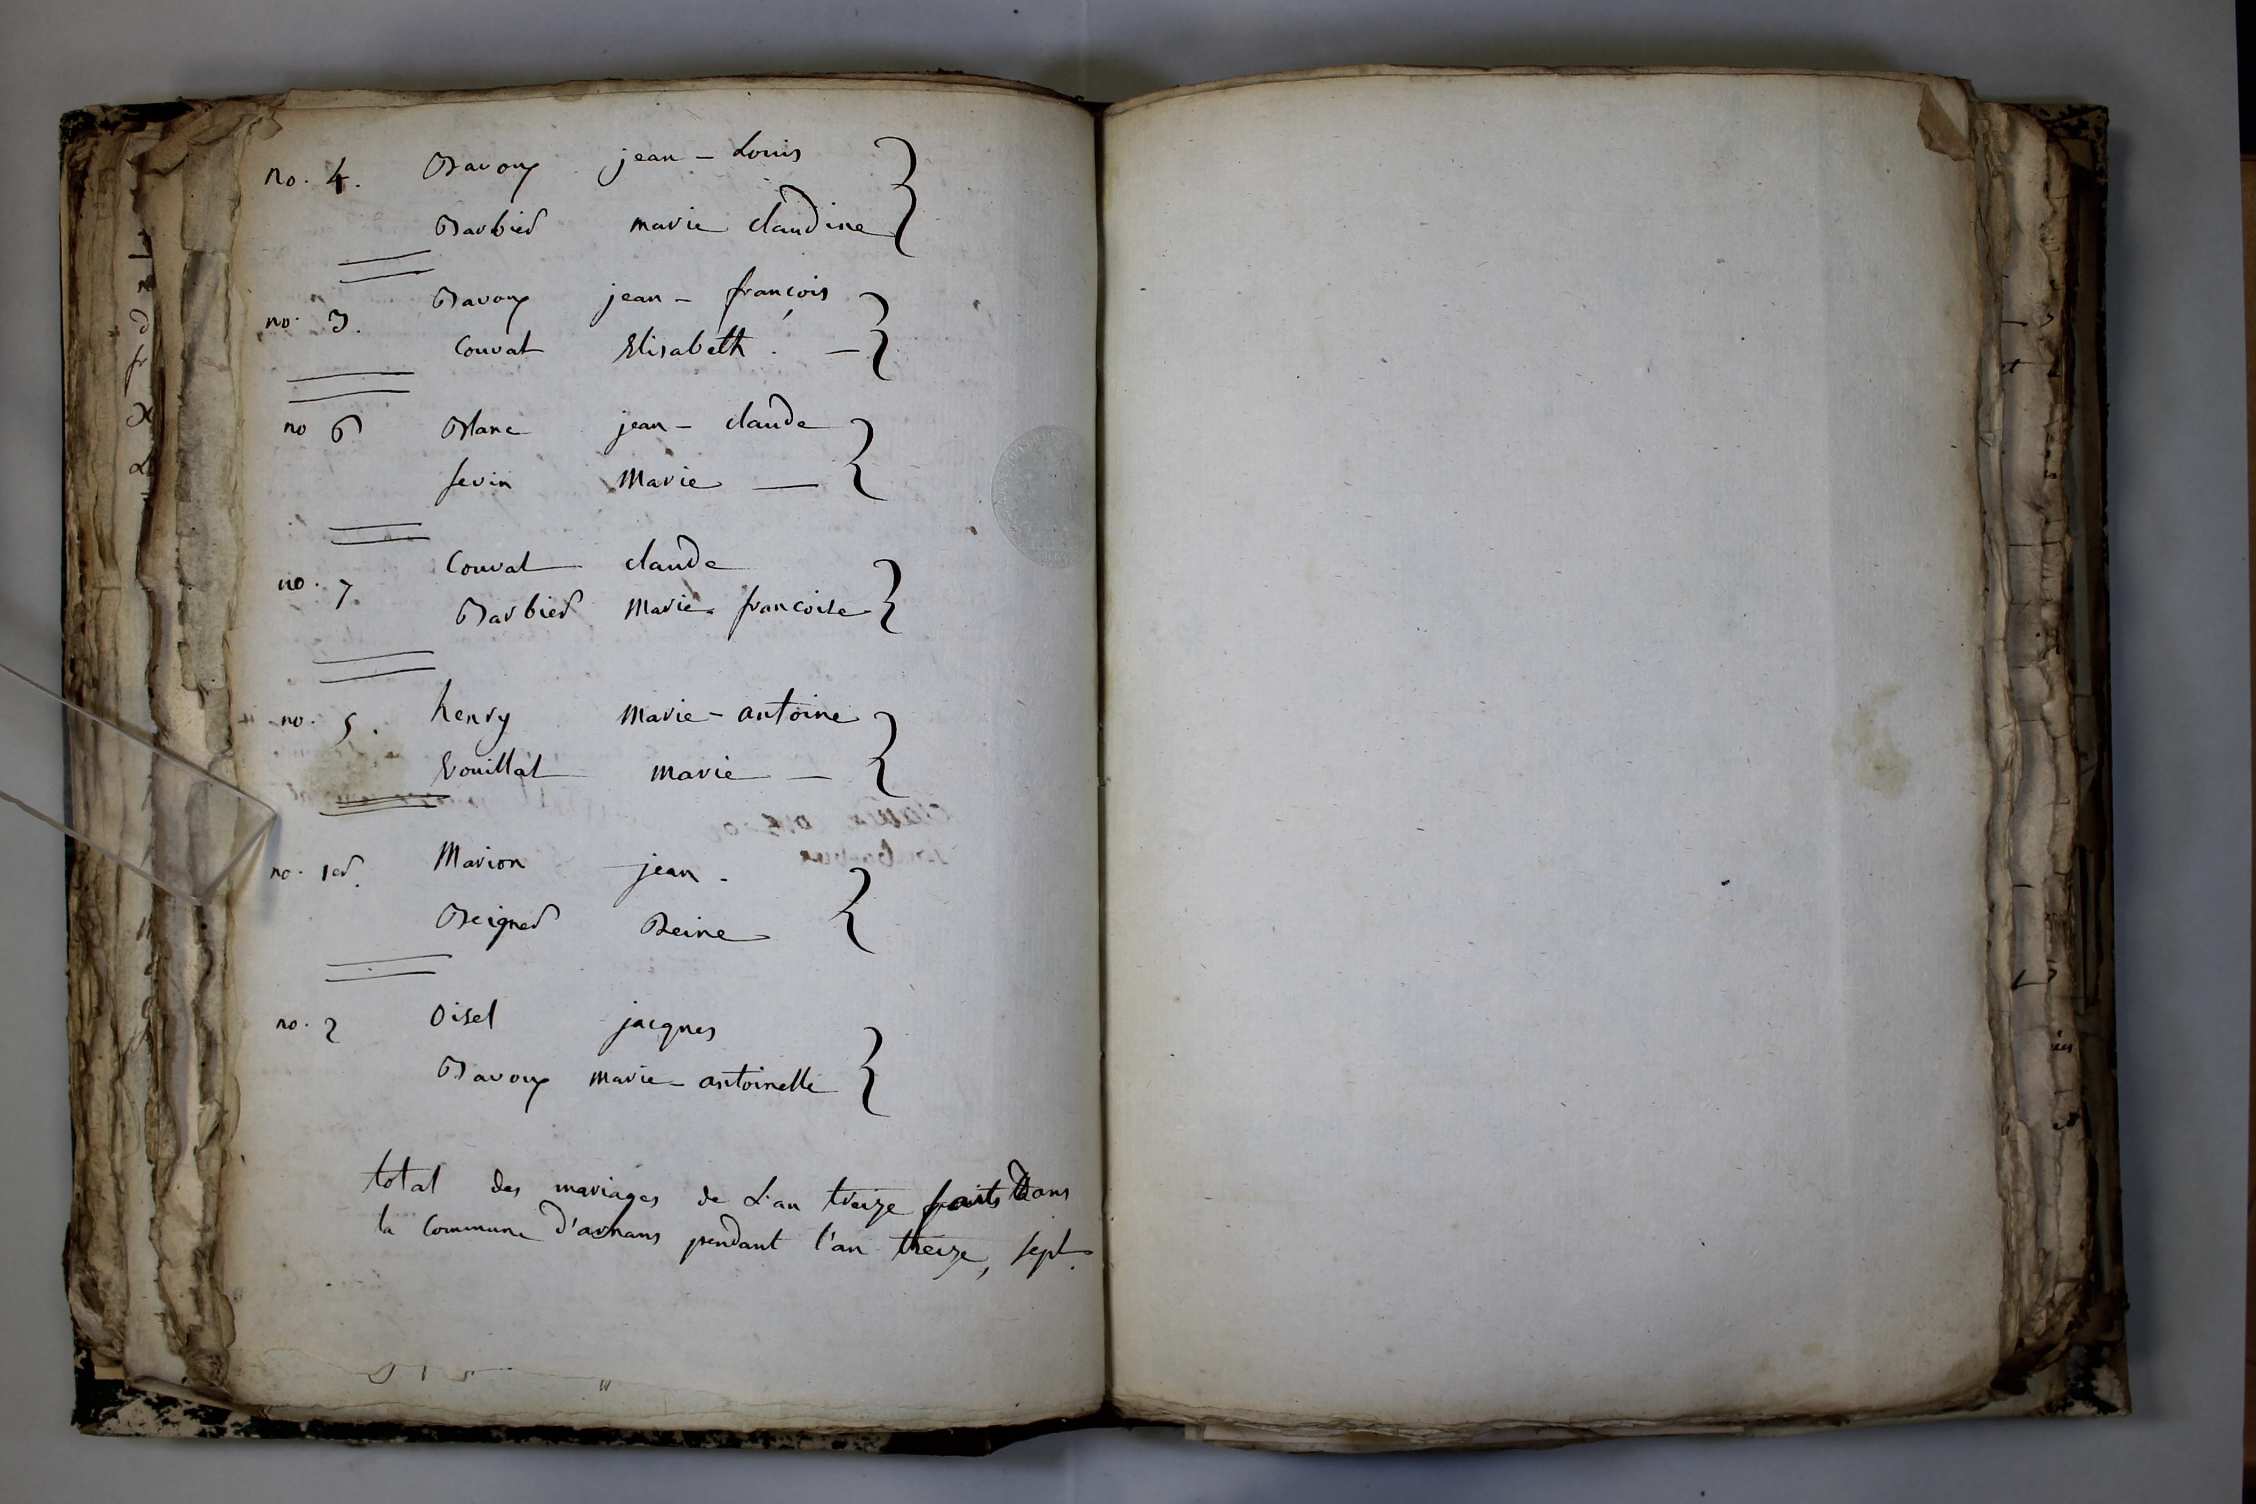 no. 4. Bavoux jean - Louis
Barbier marie claudine
no. 3. Bavoux jean - françois
Couvat Elisabeth . —
no 6 Blanc jean - claude
sevin Marie —
no. 7 Couvat claude
Barbier Marie francoise
no. 5. henry Marie - antoine
Vouillat marie —
no. 1er. Marion jean -
Beigner Reine
no. 2 Oisel jacques
Bavoux marie - antoinette
total des mariages de L'an treize faits dans
la Commune d'arnans pendant l'an treize, sept.